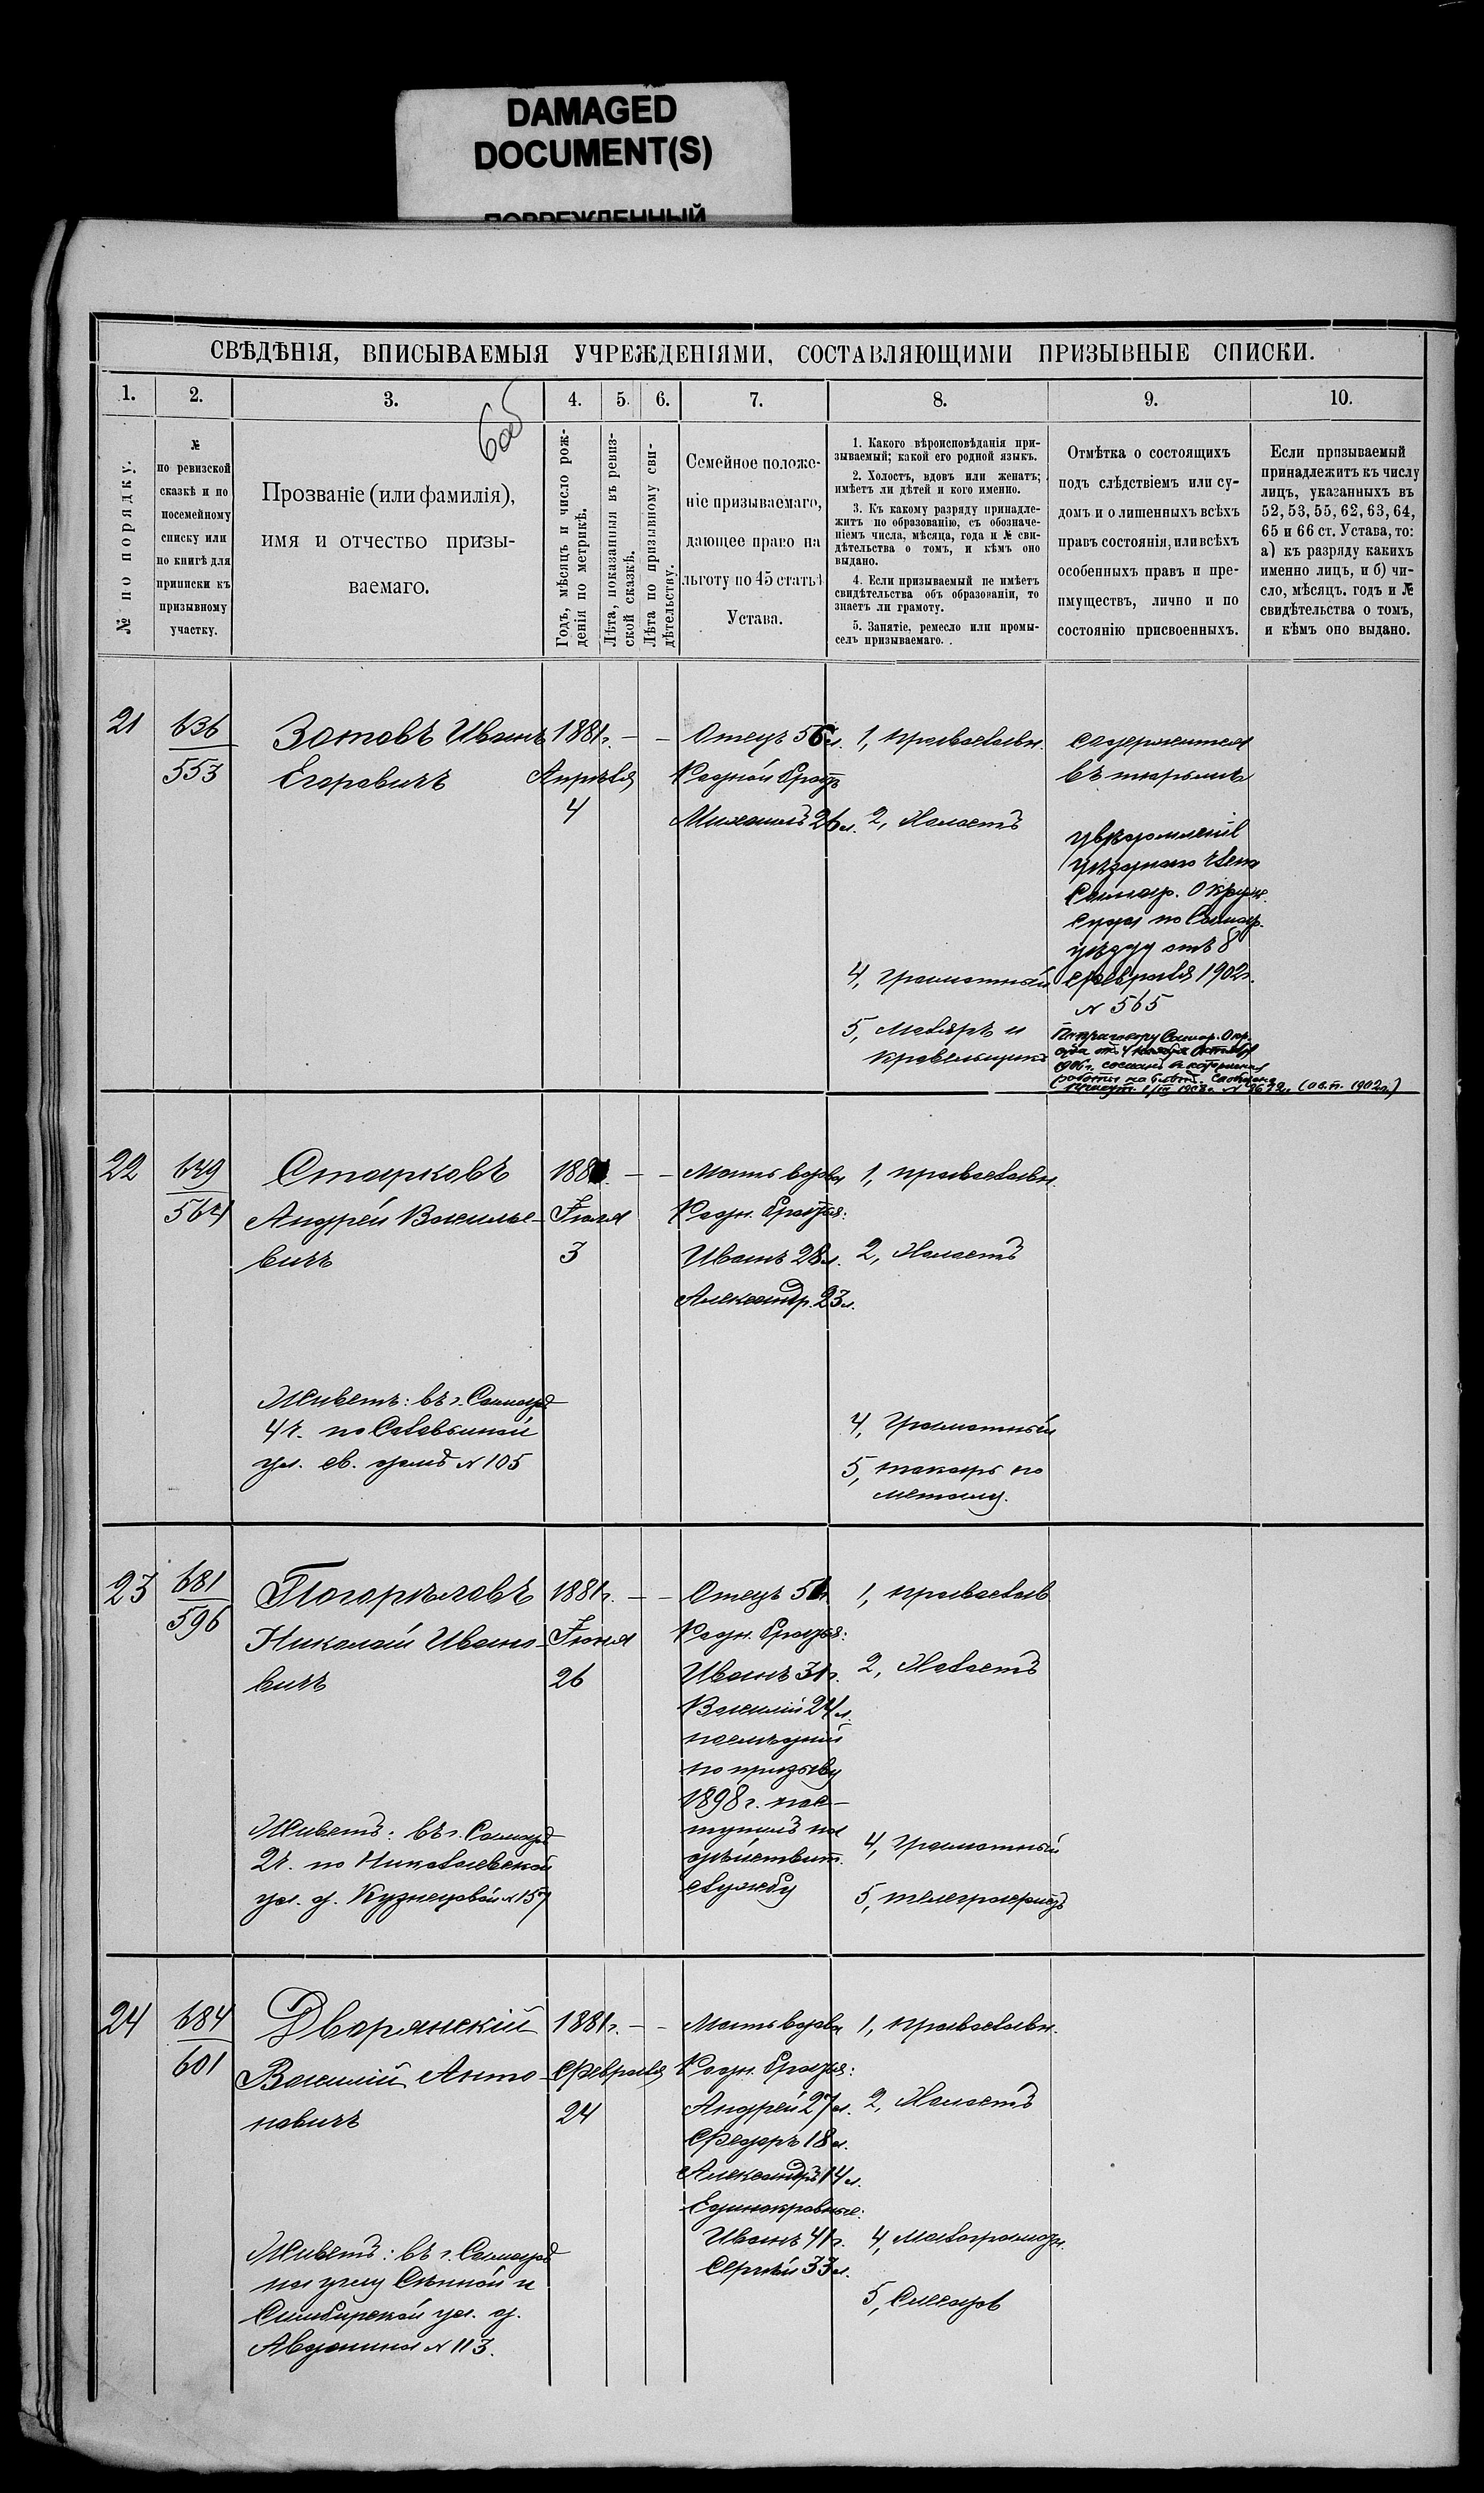 DAMAGED
DOCUMENT(S)
ПОВРЕЖДЕННЫЙ
СВѢДѢНІЯ, ВПИСЫВАЕМЫЯ УЧРЕЖДЕНІЯМИ, СОСТАВЛЯЮЩИМИ ПРИЗЫВНЫЕ СПИСКИ.
1.
2.
3.
4.
5.
6.
7.
8.
9.
10.
№ по порядку.
№
по ревизской
сказкѣ и по
посемейному
списку или
по книгѣ для
приписки къ
призывному
участку.
Прозваніе (или фамилія),
имя и отчество призы-
ваемаго.
Годъ, мѣсяцъ и число рож-
денія по метрикѣ.
Лѣта, показанныя въ ревиз-
ской сказкѣ.
Лѣта по призывному сви-
дѣтельству.
Семейное положе-
ніе призываемаго,
дающее право на
льготу по 45 статьѣ
Устава.
1. Какого вѣроисповѣданія при-
зываемый; какой его родной языкъ.
2. Холостъ, вдовъ или женатъ;
имѣетъ ли дѣтей и кого именно.
3. Къ какому разряду принадле-
житъ по образованію, съ обозначе-
ніемъ числа, мѣсяца, года и № сви-
дѣтельства о томъ, и кѣмъ оно
выдано.
4. Если призываемый не имѣетъ
свидѣтельства объ образованіи, то
знаетъ ли грамоту.
5. Занятіе, ремесло или промы-
селъ призываемаго.
Отмѣтка о состоящихъ
подъ слѣдствіемъ или су-
домъ и о лишенныхъ всѣхъ
правъ состоянія, или всѣхъ
особенныхъ правъ и пре-
имуществъ, лично и по
состоянію присвоенныхъ.
Если призываемый
принадлежитъ къ числу
лицъ, указанныхъ въ
52, 53, 55, 62, 63, 64,
65 и 66 ст. Устава, то:
а) къ разряду какихъ
именно лицъ, и б) чи-
сло, мѣсяцъ, годъ и №
свидѣтельства о томъ,
и кѣмъ оно выдано.
21
636
553
Зотовъ Иванъ
Егоровичъ
1881г.
Апрѣля
4
— —
Отецъ 56л.
Родной братъ
Михаилъ 26л.
1, православн.
2, Холостъ
4, грамотный
5, Маляръ и
кровельщикъ
содержится
въ тюрьмѣ
увѣдомленіе
уѣзднаго члена
Самар. Окружн.
Суда по Самар.
уѣзду отъ 8
февраля 1902г.
№ 565
По приговору Самар. Окр.
1906г. сосланъ въ каторжныя
работы на
(ов.п. 1902г.)
22
649
564
Старковъ
Андрей Василье-
вичъ
Живетъ: въ г. Самарѣ
4ч. по Соловьиной
ул. св. домъ № 105
188
Іюля
3
— —
Мать вдова
Родн. братья:
Иванъ 28л.
Александр. 23л.
1, православн.
2, Холостъ
4, грамотный
5, токарь по
металлу.
23
681
596
Погорѣловъ
Николай Ивано-
вичъ
Живетъ: въ г. Самарѣ
2ч. по Николаевской
ул. д. Кузнецовой № 157
1881г.
Іюня
26
— —
Отецъ
Родн. братья:
Иванъ 31г.
Василій 24л.
послѣдній
по призыву
1898г. пос-
тупилъ на
дѣйствит.
службу
1, православ
2, Холостъ
4, грамотный
5, телеграфистъ
24
684
601
Дворянскій
Василій Анто-
новичъ
Живетъ: въ г. Самарѣ
на углу Сѣнной и
Симбирской ул. д.
Авдонина № 113.
1881г.
Февраля
24
— —
Мать вдова
Родн. братья:
Андрей 27л.
Федоръ 18л.
Александръ 14л.
Единокровные:
Иванъ 41г.
Сергѣй 33л.
1, православн.
2, Холостъ
4, Малограмотн.
5, Слесарь